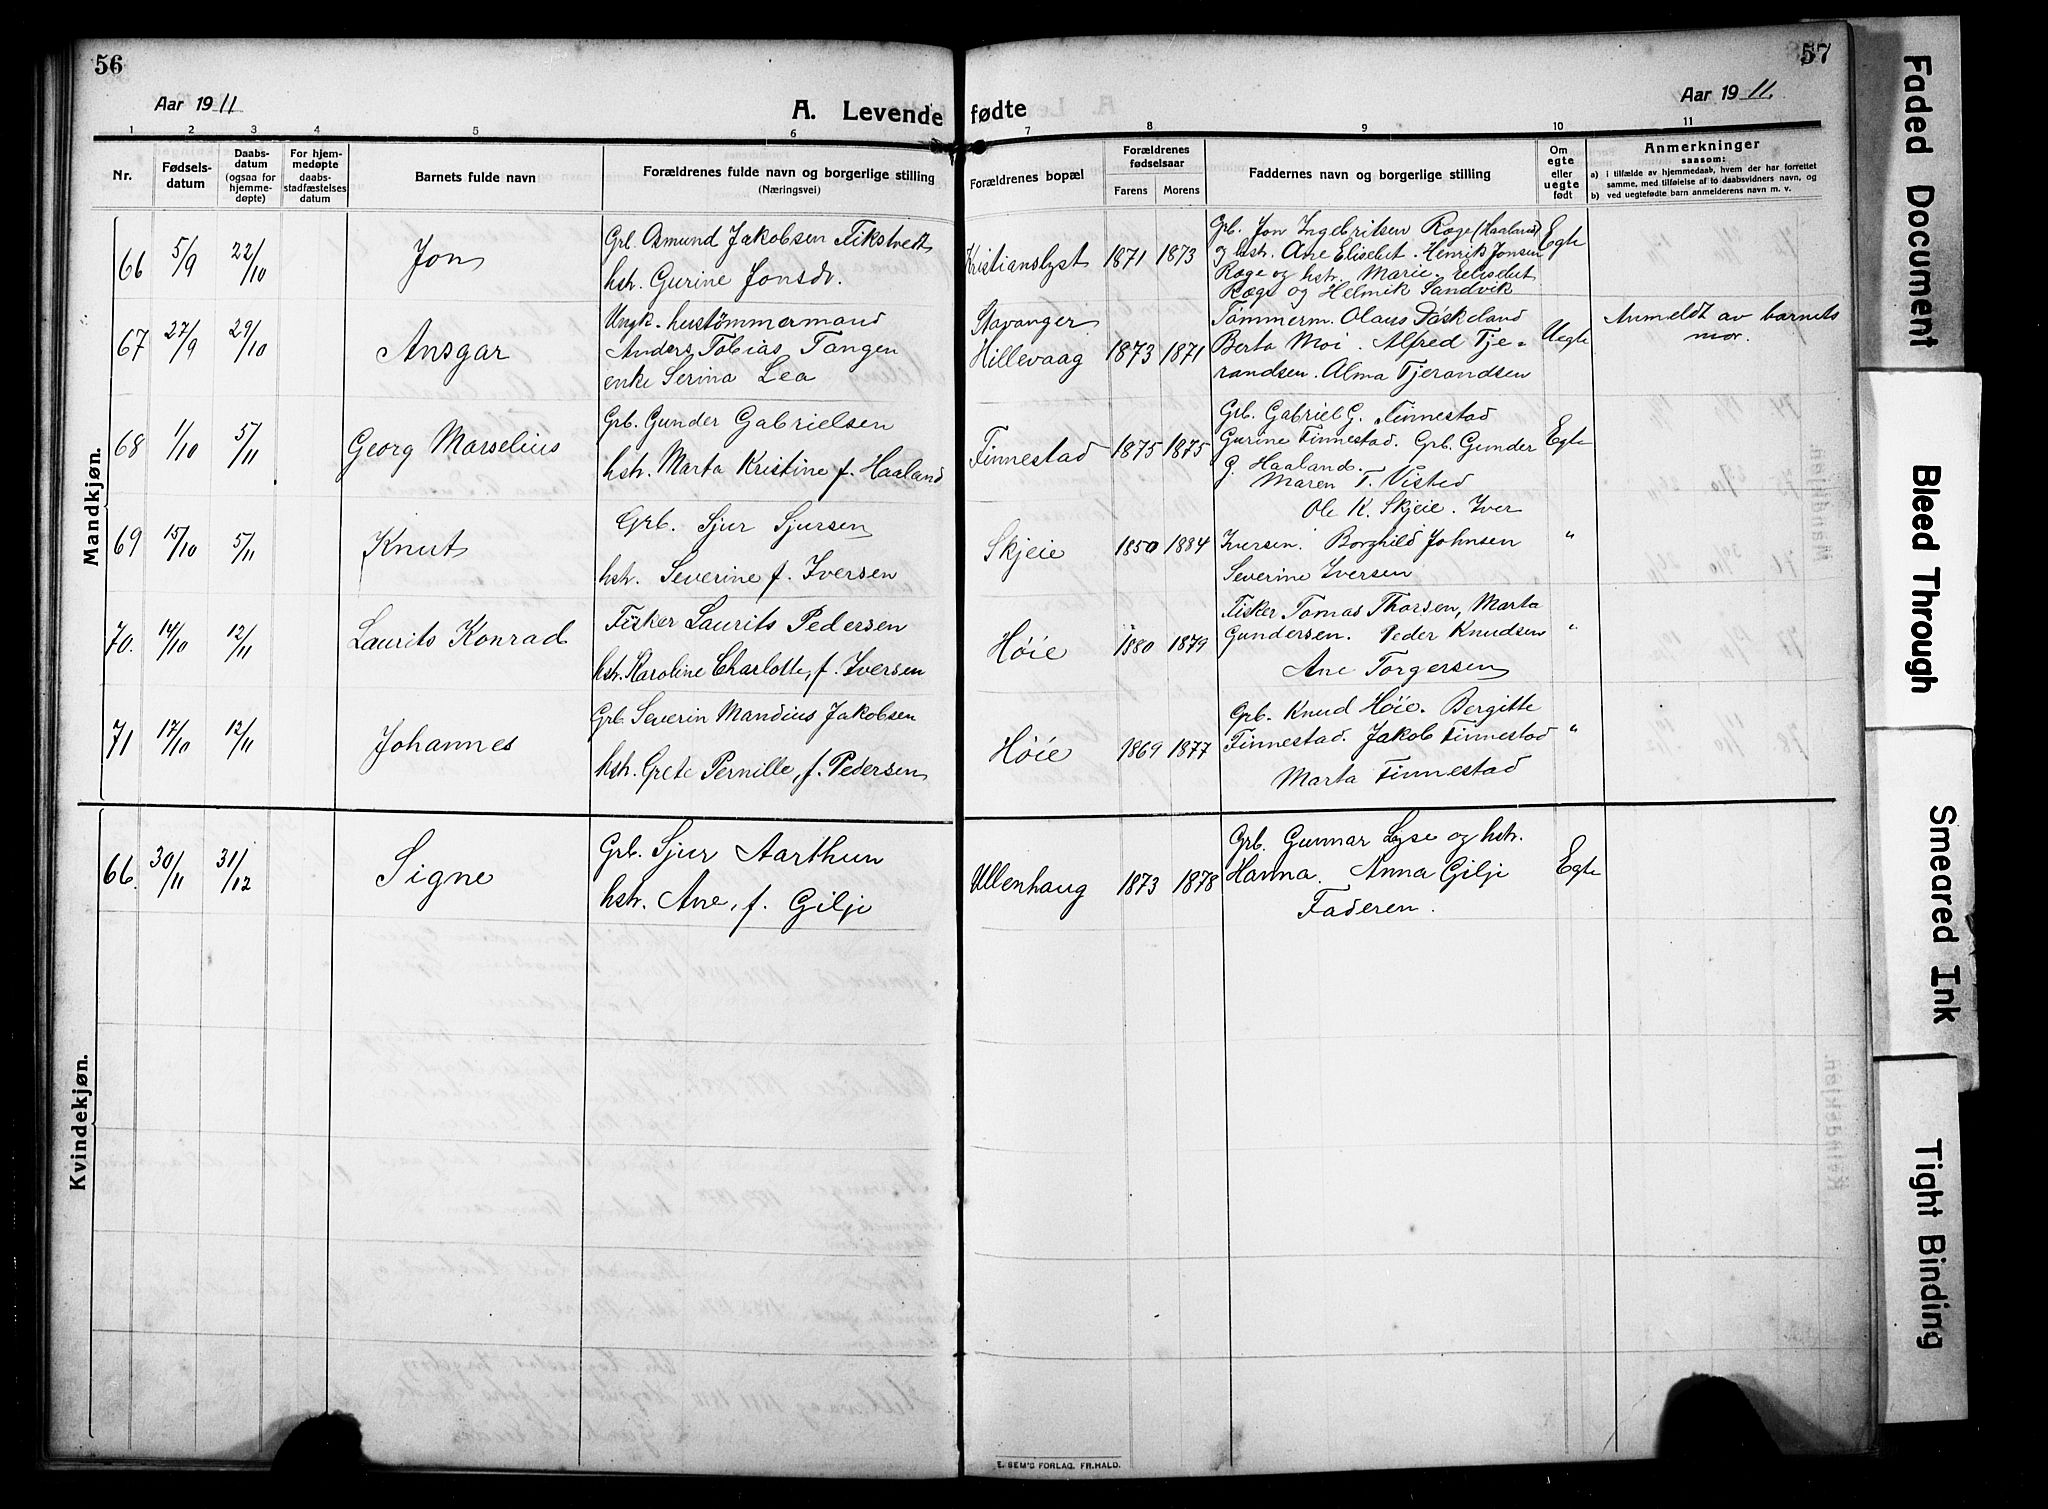 56
Aar 1911
A. Levende
1 2 3 4 5 6
Nr.
Fødsels-
datum
Daabs-
datum
(ogsaa for
hjemme-
døpte)
For hjem-
medøpte
daabs-
stadfæstelses
datum
Barnets fulde navn
Forældrenes fulde navn og borgerlige stilling
(Næringsvei)
Mandkjøn.
66 5/9 22/10 Jon
Grb. Osmund Jakobsen Tikstvett
hstr. Gurine Jonsdr.
67 27/9 29/10 Ansgar
Ungk. hustømmermand
Anders Tobias Tangen
enke Serina Lea
68 1/10 5/11 Georg Marselius
Grb. Gunder Gabrielsen
hstr. Marta Kristine f. Haaland
69 15/10 5/11 Knut
Grb. Sjur Sjursen
hstr. Severine f. Iversen
70. 14/10 12/11 Laurits Konrad
Fisker Laurits Pedersen
hstr. Karoline Charlotte, f. Iversen
71 17/10 12/11 Johannes
Grb. Severin Mandius Jakobsen
hstr. Grete Pernille, f. Pedersen
Kvindekjøn.
66. 30/11 31/12 Signe
Grb. Sjur Aarthun
hstr. Ane, f. Gilje
57
Aar 1911.
fødte
7 8 9 10 11
Forældrenes bopæl
Forældrenes
fødselsaar
Farens Morens
Faddernes navn og borgerlige stilling
Om
egte
eller
uegte
født
Anmerkninger
saasom:
a) i tilfælde av hjemmedaab, hvem der har forrettet
samme, med tilføielse af to daabsvidners navn, og
b) ved uegtefødt barn anmelderens navn m. v.
Kristianslyst 1871 1873
Grb. Jon Ingebritsen Røge (Haaland)
og hstr. Ane Elisebet. Henrik Jonsen
Røge og hstr. Marie. Elisebet
Røge og Helmik Sandvik
Egte
Stavanger
Hillevaag 1873 1871
Tømmerm. Olaus Døskeland
Berta Moi. Alfred Tje-
randsen. Alma Tjerandsen
Uegte
Anmeldt av barnets
mor.
Finnestad 1875 1875
Grb. Gabriel G. Finnestad
Gurine Finnestad. Grb. Gunder
G. Haaland.
Maren T. Visted
Egte
Skjeie 1850 1884
Ole K. Skjeie. Iver
Iversen. Borghild Johnsen
Severine Iversen
"
Høie 1880 1879
Fisker Tomas Thorsen, Marta
Gundersen. Peder Knudsen
Ane Torgersen
"
Høie 1869 1877
Grb. Knud Høie. Bergitte
Finnestad. Jakob Finnestad
Marta Finnestad
"
Ullenhaug 1873 1878
Grb. Gunnar Lyse og hstr.
Hanna. Anna Gilje
Faderen.
Egte
E. SEM'S FORLAG, FR.HALD.
Faded Document
Bleed Through
Smeared Ink
Tight Binding